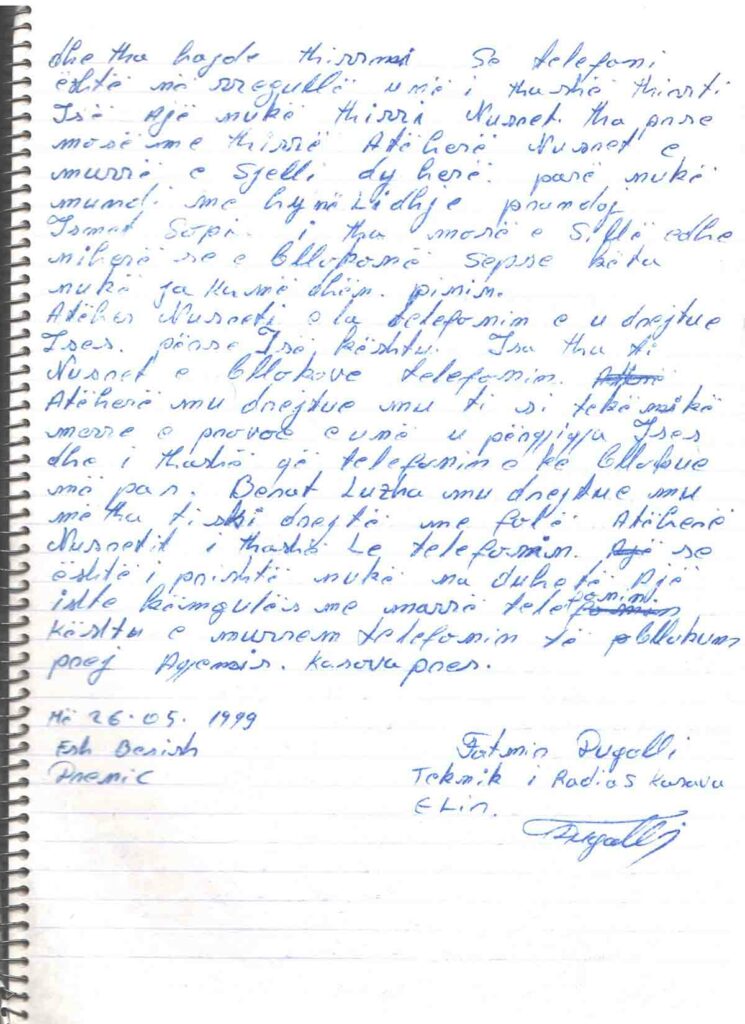 dhe tha hajde thirrmi se telefoni
është në rregullë unë i thashë thirrti
Isë Ajë nukë thirri Nusret tha prse
mosë me thirrë Atëherë Nusret e
murrë e Sjelli dy herë. parë nukë
mundi me hy në Lidhje prandaj
Ismet Sopi. i tha mosë e Sillë edhe
niherë se e Bllokomë Sepse këtu
nukë ja kamë dhën. pinin.
Atëher Nusreti e la telefonin e u drejtue
Ises. përse Isë kështu. Isa tha ti
Nusret e Bllokove telefonin.
Atëherë mu drejtue mu ti si tekë nikë
merre e provoe e unë u përgjigja Ises
dhe i thashë që telefonin e ke Bllokue
më par. Berat Luzha mu drejtue mu
më tha ti ski drejtë me folë. Atëherë
Nusretit i thashë Le telefonin. se
është i prishtë nukë na duhetë Ajë
iste këmgulës me marrë telefonini
kështu e murrem telefonin të Bllokum
prej Agjensis. Kosovapres.
Më 26.05.1999
Esh Berish
Drenic
Fatmir Dugolli
Teknik i Radios Kosova
E Lir.
Dugolli